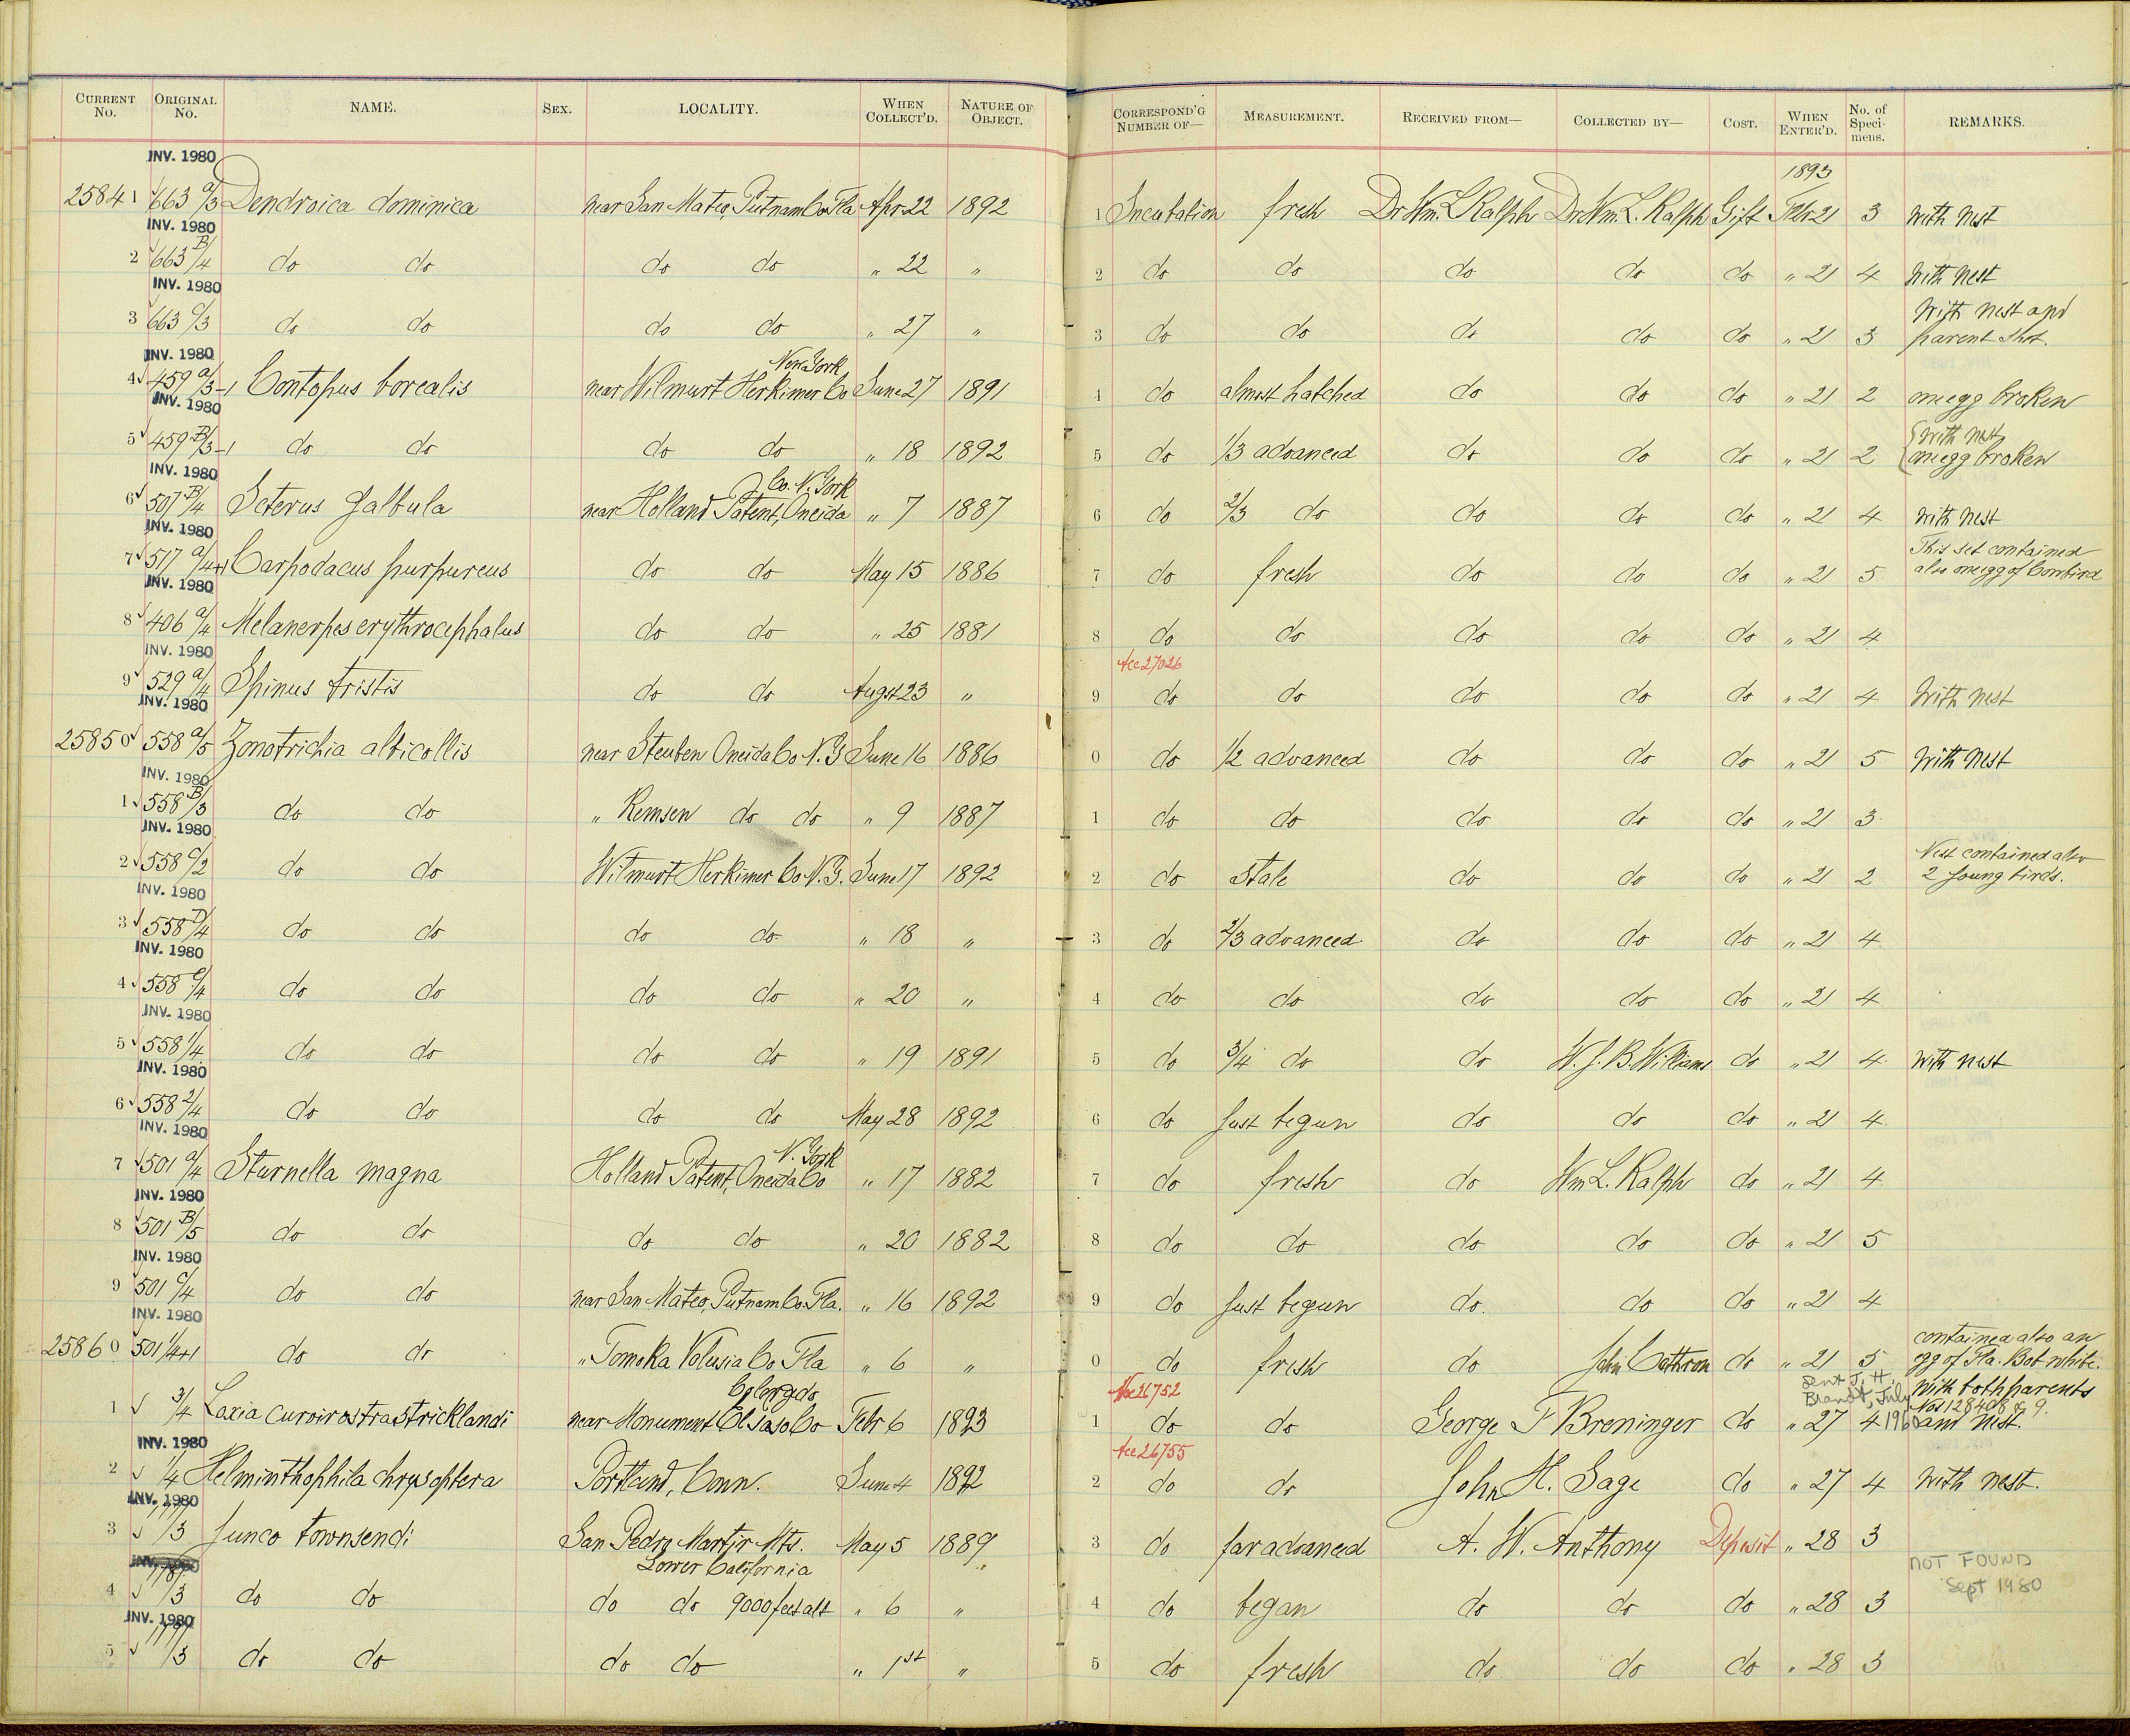 CURRENT No. ORIGINAL No. NAME. SEX. LOCALITY. WHEN COLLECT'D. NATURE OF OBJECT. CORRESPOND'G NUMBER OF— MEASUREMENT. RECEIVED FROM— COLLECTED BY— COST. WHEN ENTER'D. No. of Specimens. REMARKS.
INV. 1980
1893
25841 663 a/3 Dendroica dominica near San Mateo, Putnam Co Fla Apr 22 1892 1 Incubation fresh Dr Wm. L Ralph Dr Wm. L. Ralph Gift Febr 21 3 with nest
INV. 1980
2 663 B/4 do do do do " 22 " 2 do do do do do " 21 4 With nest
INV. 1980
With nest and
3 663 c/3 do do do do " 27 " 3 do do do do do " 21 3 parent shot.
INV. 1980
New York
4 459 a/3-1 Contopus borealis near Wilmurt Herkimer Co June 27 1891 4 do almost hatched do do do " 21 2 one egg broken
INV. 1980
with nest
5 459 B/3-1 do do do do " 18 1892 5 do 1/3 advanced do do do " 21 2 one egg broken
INV. 1980
Co. N. York
6 507 B/4 Icterus galbula near Holland Patent, Oneida " 7 1887 6 do 2/3 do do do do " 21 4 with nest
INV. 1980
This set contained
7 517 a/4+1 Carpodacus purpureus do do May 15 1886 7 do fresh do do do " 21 5 also one egg of Cowbird
INV. 1980
8 406 a/4 Melanerpes erythrocephalus do do " 25 1881 8 do do do do do " 21 4
INV. 1980
Acc 27026
9 529 a/4 Spinus tristis do do Augst 23 " 9 do do do do do " 21 4 With nest
INV. 1980
25850 558 a/5 Zonotrichia albicollis near Steuben Oneida Co N. Y June 16 1886 0 do 1/2 advanced do do do " 21 5 With nest
INV. 1980
1 558 B/3 do do " Remsen do do " 9 1887 1 do do do do do " 21 3
INV. 1980
Nest contained also
2 558 c/2 do do Wilmurt Herkimer Co N. Y. June 17 1892 2 do stale do do do " 21 2 2 young birds.
INV. 1980
3 558 D/4 do do do do " 18 " 3 do 2/3 advanced do do do " 21 4
INV. 1980
4 558 e/4 do do do do " 20 " 4 do do do do do " 21 4
INV. 1980
5 558 1/4 do do do do " 19 1891 5 do 3/4 do do W. J. B. Williams do " 21 4 with nest
INV. 1980
6 558 2/4 do do do do May 28 1892 6 do Just begun do do do " 21 4
INV. 1980
N. York
7 501 a/4 Sturnella magna Holland Patent, Oneida Co " 17 1882 7 do fresh do Wm L. Ralph do " 21 4
INV. 1980
8 501 B/5 do do do do " 20 1882 8 do do do do do " 21 5
INV. 1980
9 501 c/4 do do near San Mateo, Putnam Co. Fla. " 16 1892 9 do Just begun do do do " 21 4
INV. 1980
contained also an
25860 501 1/4+1 do do " Tomoka Volusia Co Fla " 6 " 0 do fresh do John Cathron do " 21 5 egg of Fla. Bob white.
Colorado Acc 26752 Sent J. H. Brandt, July 1960 with both parents
Nos 128408 & 9.
1 3/4 Loxia curvirostra stricklandi near Monument El Paso Co Febr 6 1893 1 do do George F Breninger do " 27 4 and nest.
INV. 1980
Acc 26755
2 1/4 Helminthophila chrysoptera Portland, Conn. June 4 1892 2 do do John H. Sage do " 27 4 With nest.
INV. 1980
3 /3 Junco townsendi San Pedro Martir Mts. May 5 1889 3 do far advanced A. W. Anthony Deposit " 28 3
Lower California
NOT FOUND
Sept 1980
4 /3 do do do do 9000 feet alt " 6 " 4 do began do do do " 28 3
INV. 1980
5 /3 do do do do " 1st " 5 do fresh do do do " 28 3